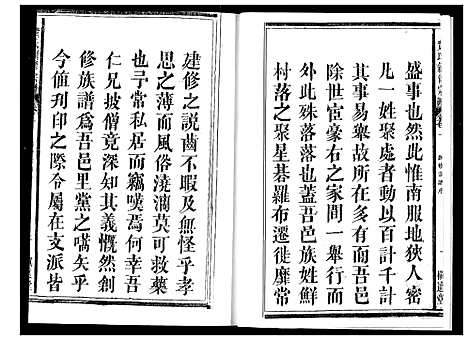 盛事也然此惟南服地狹人密
凡一姓聚處者動以百計千計
其事易舉故所在多有而吾邑
除世宦豪右之家間一舉行而
外此殊落落也蓋吾邑族姓鮮
村落之聚星碁羅布遷徙靡常
建修之說齒不暇及無怪乎孝
思之薄而風俗澆漓莫可救藥
也予常私居而竊嘆焉何幸吾
仁兄披僧竟深知其慨然創
修族譜爲吾邑里黨之嚆矢乎
今值刋印之際令屬在支派皆